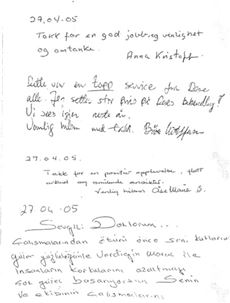 27.04.05
Takk for en god jobb og venlighet
og omtanke.
Anna Kristoff
Dette var en topp service fra Dere
alle. Jeg setter stor pris på Deres behandling!
Vi sees igjen neste år.
Vennlig hilsen
27.04.05.
Takk for en positiv opplevelse, flott
arbeid og smilende ansikter.
Vennlig hilsen
27.04.05
Sevgili Doktorum...
Çalışmalarından ötürü önce seni kutlarım
güler yüzlülüğünle verdiğin moral ile
insanların korkularını azaltmayı
çok güzel başarıyorsun Senin
ve ekibinin çalışmalarını